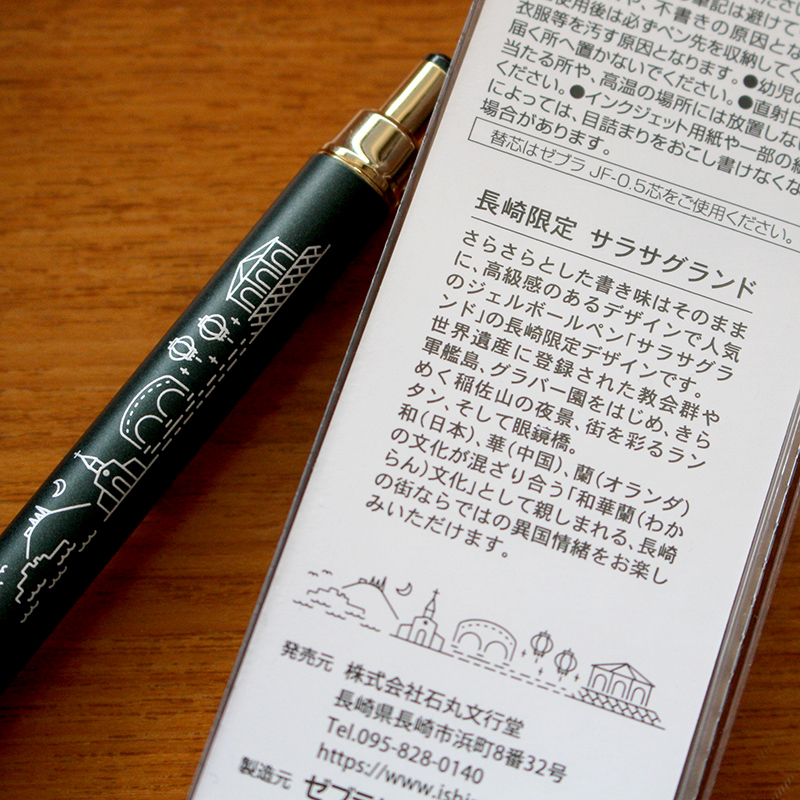 筆記は避けて
や、不書きの原因とな
使用後は必ずペン先を収納してく
衣服等を汚す原因となります。●幼児の
届く所へ置かないでください。●直射日
当たる所や、高温の場所には放置しない
ください。●インクジェット用紙や一部の紙
によっては、目詰まりをおこし書けなくな
場合があります。
替芯はゼブラ JF-0.5芯をご使用ください。
長崎限定 サラサグランド
さらさらとした書き味はそのまま
に、高級感のあるデザインで人気
のジェルボールペン「サラサグラ
ンド」の長崎限定デザインです。
世界遺産に登録された教会群や
軍艦島、グラバー園をはじめ、きら
めく稲佐山の夜景、街を彩るラン
タン、そして眼鏡橋。
和(日本)、華(中国)、蘭(オランダ)
の文化が混ざり合う「和華蘭(わか
らん)文化」として親しまれる、長崎
の街ならではの異国情緒をお楽し
みいただけます。
発売元 株式会社石丸文行堂
長崎県長崎市浜町8番32号
Tel.095-828-0140
https://www.ishi
製造元 ゼブラ